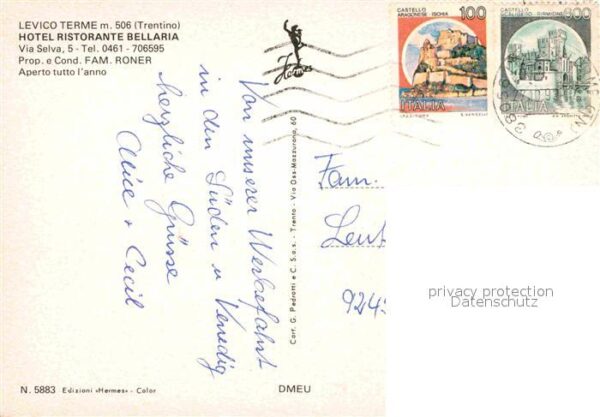 LEVICO TERME m. 506 (Trentino)
HOTEL RISTORANTE BELLARIA
Via Selva, 5 - Tel. 0461 - 706595
Prop. e Cond. FAM. RONER
Aperto tutto l'anno
Hermes
CASTELLO
ARAGONESE - ISCHIA
100
ITALIA
CASTELLO
SCALIGERO - SIRMIONE
ITALIA
Von unserer Werbefahrt
in den Süden u Venedig
herzliche Grüsse
Alice + Cecil
Cart. G. Pedrotti e C. S.a.s. - Trento - Via Oss-Mazzurana, 60
Fam.
privacy protection
Datenschutz
N. 5883 Edizioni «Hermes» - Color
DMEU